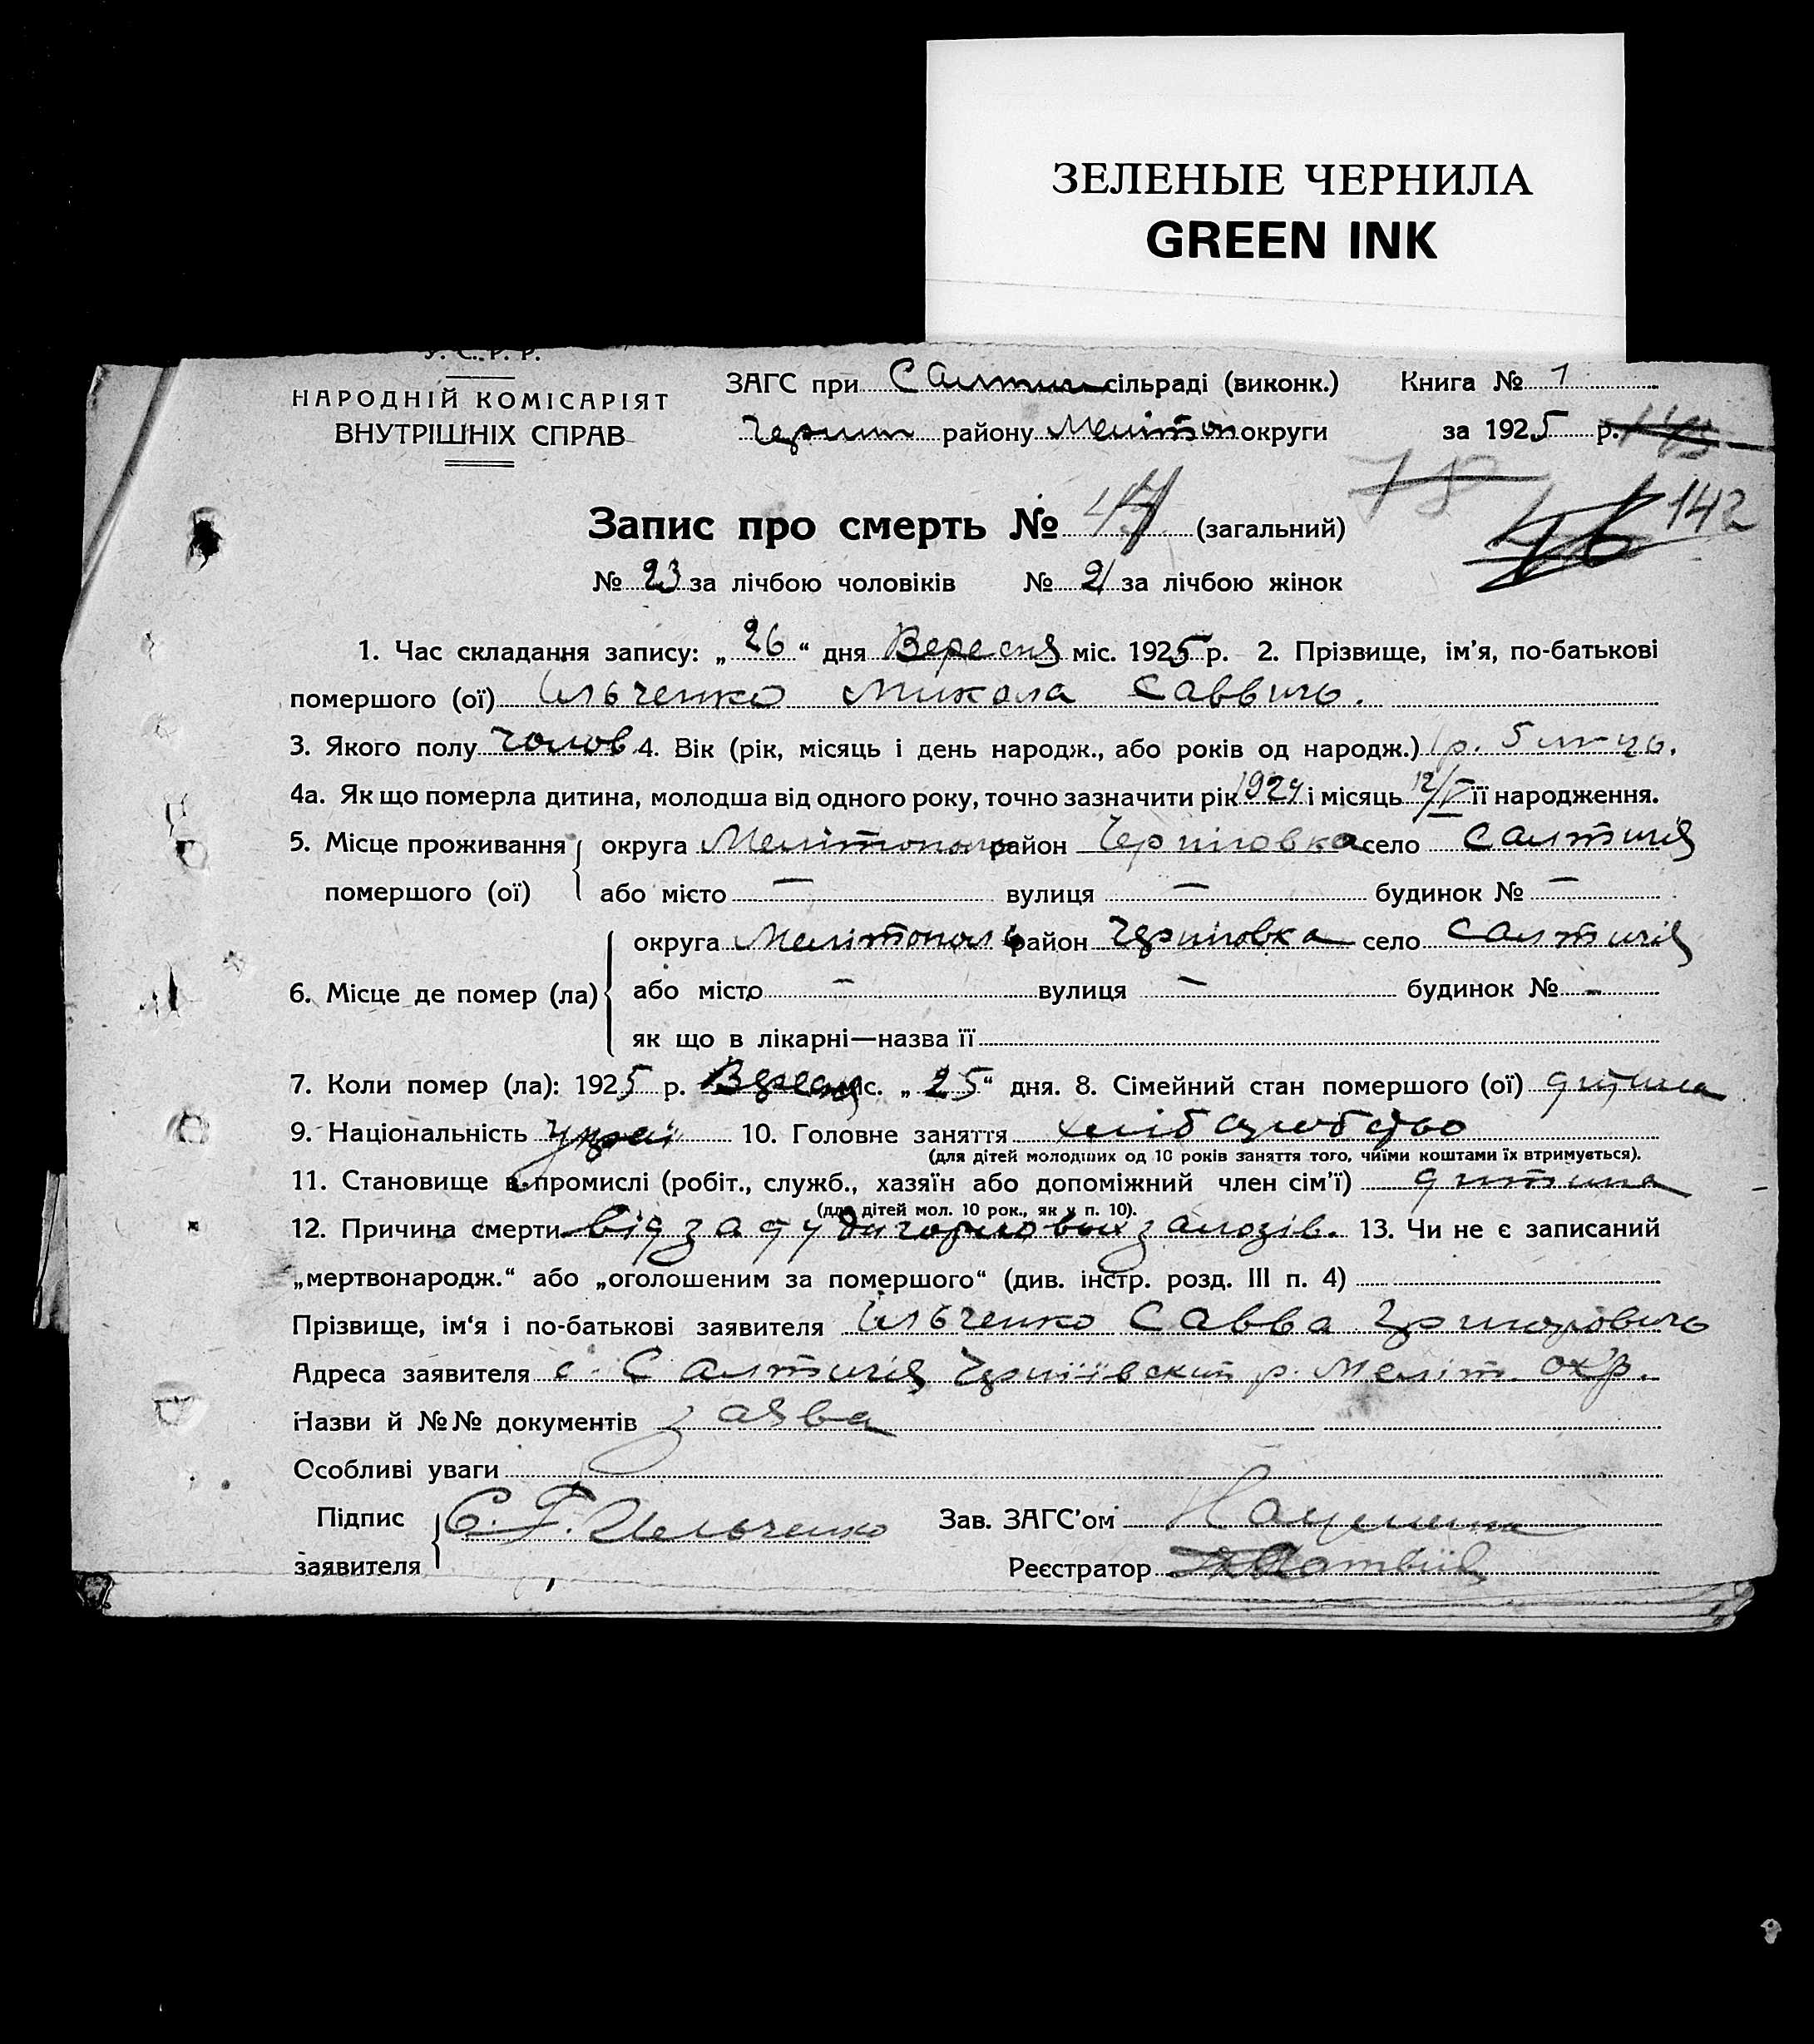 ЗЕЛЕНЫЕ ЧЕРНИЛА
GREEN INK
У. С. Р. Р.
НАРОДНІЙ КОМІСАРІЯТ
ВНУТРІШНІХ СПРАВ
ЗАГС при Салтич сільраді (виконк.) Книга № 1
району Мелітоп округи за 1925 р.
78
Запис про смерть № 44 (загальний)
46 142
№ 23 за лічбою чоловіків № 21 за лічбою жінок
1. Час складання запису: „ 26 “ дня Вересня міс. 1925 р. 2. Прізвище, ім’я, по-батькові
помершого (ої) Ильченко Микола Саввичь.
3. Якого полу чолов 4. Вік (рік, місяць і день народж., або років од народж.) 1 р. 5
4а. Як що померла дитина, молодша від одного року, точно зазначити рік 1924 і місяць 12/V її народження.
5. Місце проживання округа Мелітополь район Черніговка село Салтичія
помершого (ої) або місто — вулиця — будинок № —
округа Мелітополь район Чернiговка село Салтичія
6. Місце де помер (ла) або місто — вулиця — будинок № -
як що в лікарні—назва її
7. Коли помер (ла): 1925 р. Вересня міс. „ 25 “ дня. 8. Сімейний стан помершого (ої) дитина
9. Національність Украї 10. Головне заняття хлібаробство
(для дітей молодших од 10 років заняття того, чиїми коштами їх втримується).
11. Становище в промислі (робіт., служб., хазяїн або допоміжний член сім’ї) дитина
(для дітей мол. 10 рок., як у п. 10).
12. Причина смерти від заду горловых залозів. 13. Чи не є записаний
„мертвонародж.“ або „оголошеним за помершого“ (див. інстр. розд. III п. 4)
Прізвище, ім‘я і по-батькові заявителя Ильченко Савва Григоровичь
Адреса заявителя с. Салтичія р. Меліт. окр.
Назви й №№ документів заява
Особливі уваги
Підпис С. Г. Ильченко Зав. ЗАГС’ом
заявителя Реєстратор